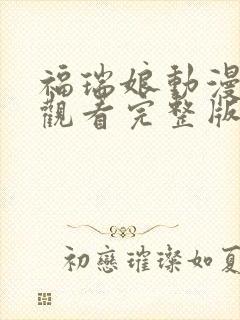 福瑞娘動漫
觀看完整版
初戀璀璨如夏